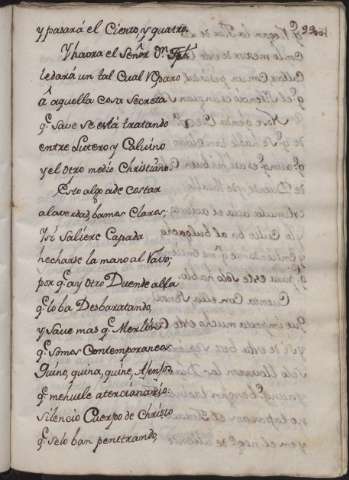 y pasará el Cierzo, y quatro
Y haora el Señor Dn. Jph.
le dará un tal Cual Reparo
â aquella Cosa Secreta
q.e Save se está tratando
entre Lutero y Calvino
y el otro medio Christiano.
Esto algo a de Costar
a la verdad, bamos Claros;
Y si saliere Capada
hecharse la mano al Ravo;
por q.e ay otro Duende alla
q.e lo ba Desbaratando,
y save mas q.e Merlin
q.e somos Contemporaneos.
Quino, quina, quino, Alonso
q.e me huele a tercianario:
Silencio Cuerpo de Christo
q.e se lo ban penetrando,